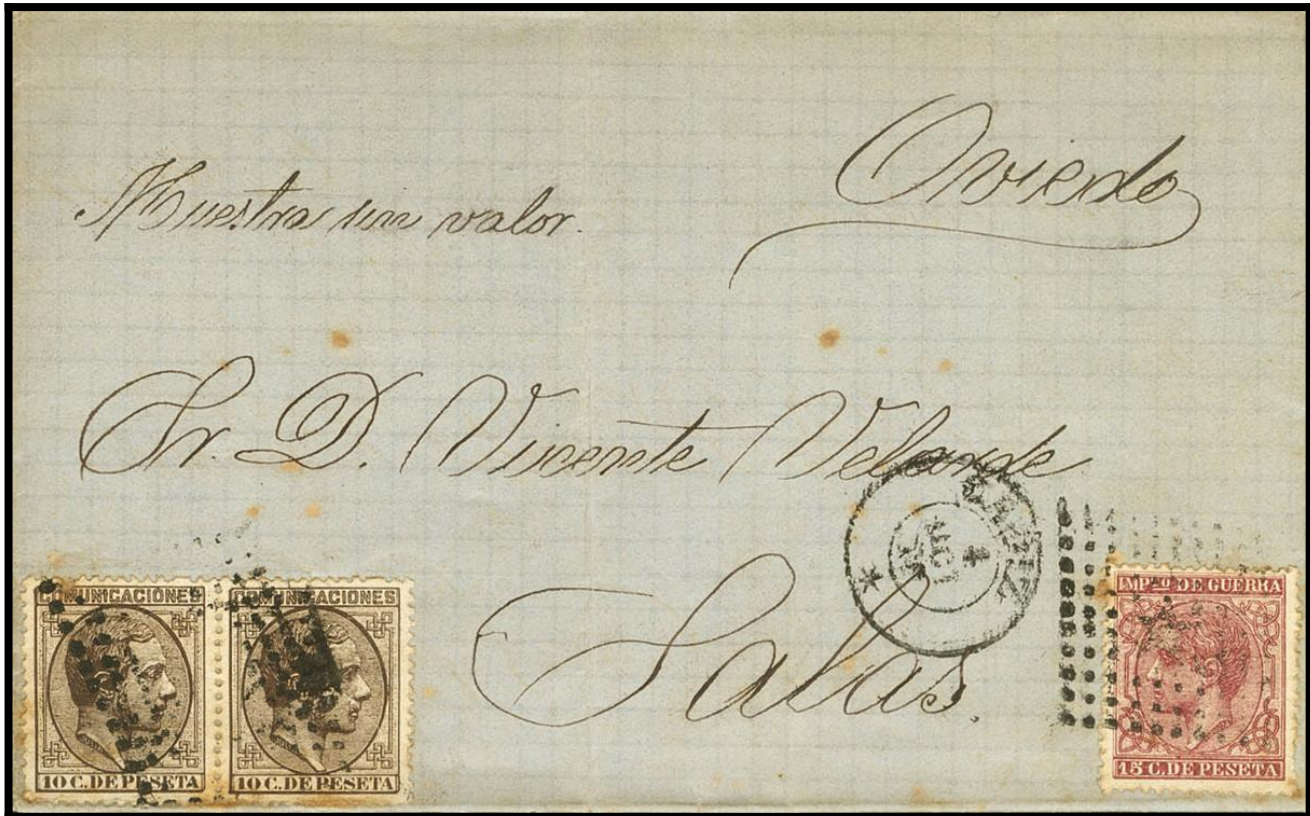 Oviedo
Muestra sin valor.
Sr. D. Vicente Velarde
Salas.
COMUNICACIONES
10 C. DE PESETA
COMUNICACIONES
10 C. DE PESETA
IMPTO. DE GUERRA
15 C. DE PESETA